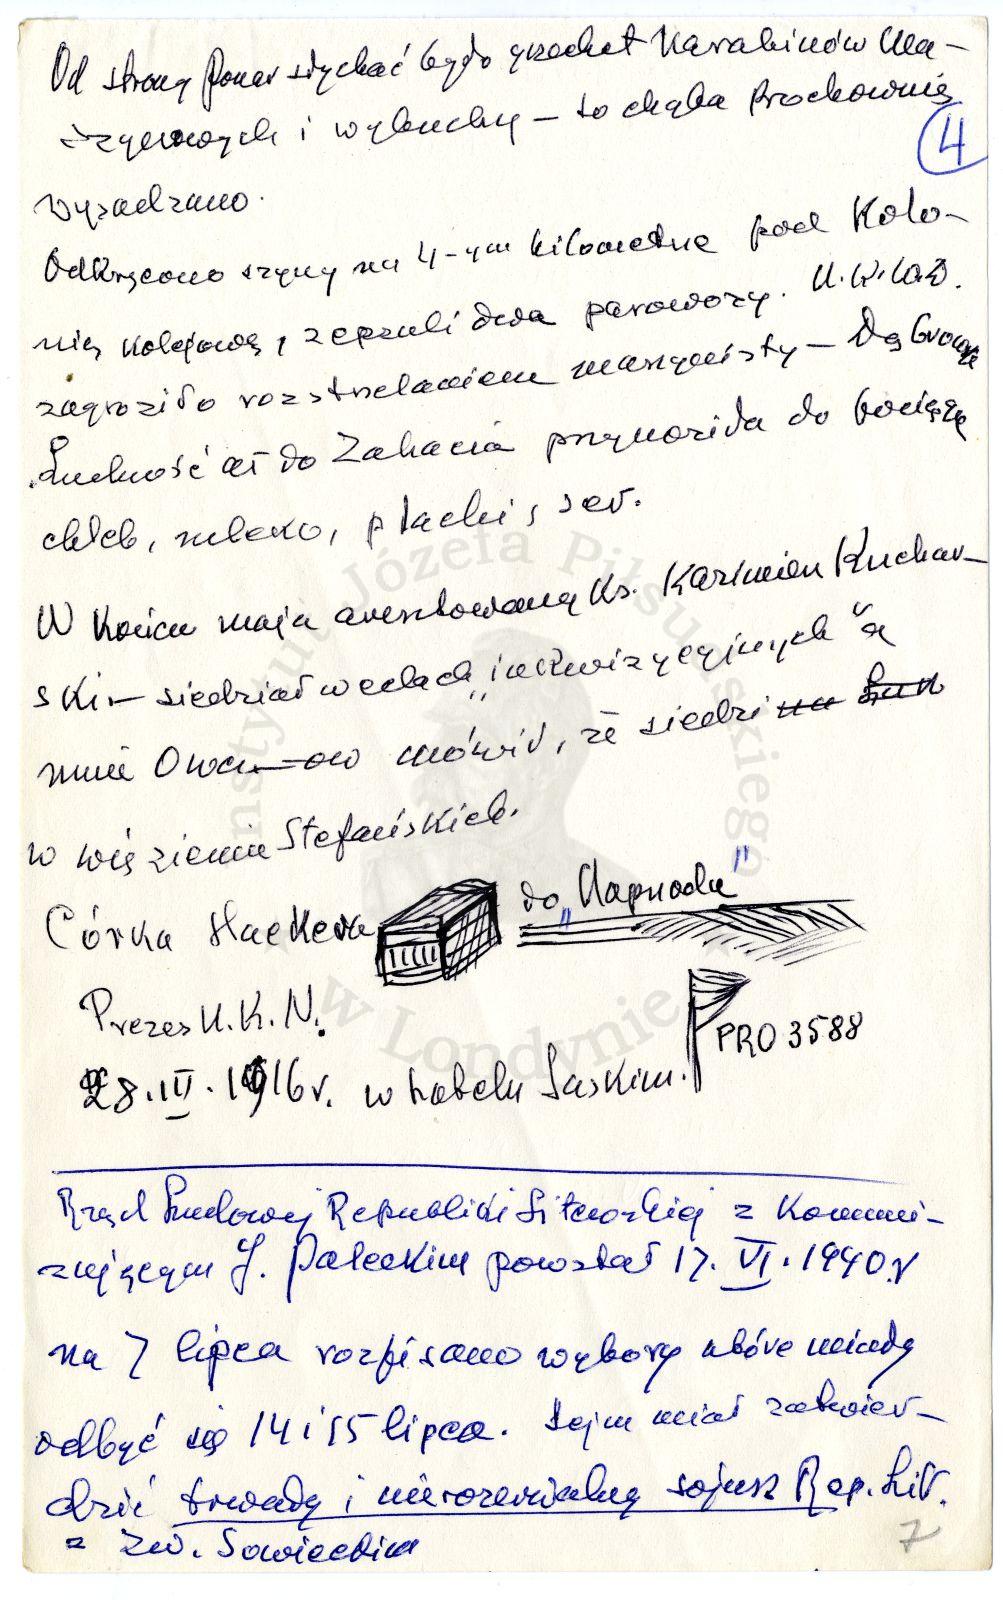 Od strony Ponar słychać było grzechot karabinów ma-
szynowych i wybuchy – to chyba Prochownię
4
wysadzano.
Odkręcono szyny na 4-ym kilometrze pod Kolo-
nią kolejową, zepsuli dwa parowozy. N.K.W.D.
zagroziło rozstrzelaniem maszynisty – Dąbrowę
Ludność aż do Zahacia przynosiła do pociągu
chleb, mleko, placki, ser.
W końcu maja aresztowany ks. Kazimierz Kuchar-
ski – siedział w celach „inkwizycyjnych" a
mnie mówił, że siedzi
w więzieniu Stefańskiek.
Córka Haeckera do „Naprzodu"
Prezes N.K.N.
PRO 3588
28.III.1916 r. w hotelu Saskim.
Rząd Ludowej Republiki Litewskiej z Komuni-
zującym J. Paleckim powstał 17.VI.1940 r
na 7 lipca rozpisano wybory które miały
odbyć się 14 i 15 lipca. Sejm miał zatwier-
dzić trwały i nierozerwalny sojusz Rep. Lit.
z Zw. Sowieckim
7
Instytut Józefa Piłsudskiego
w Londynie